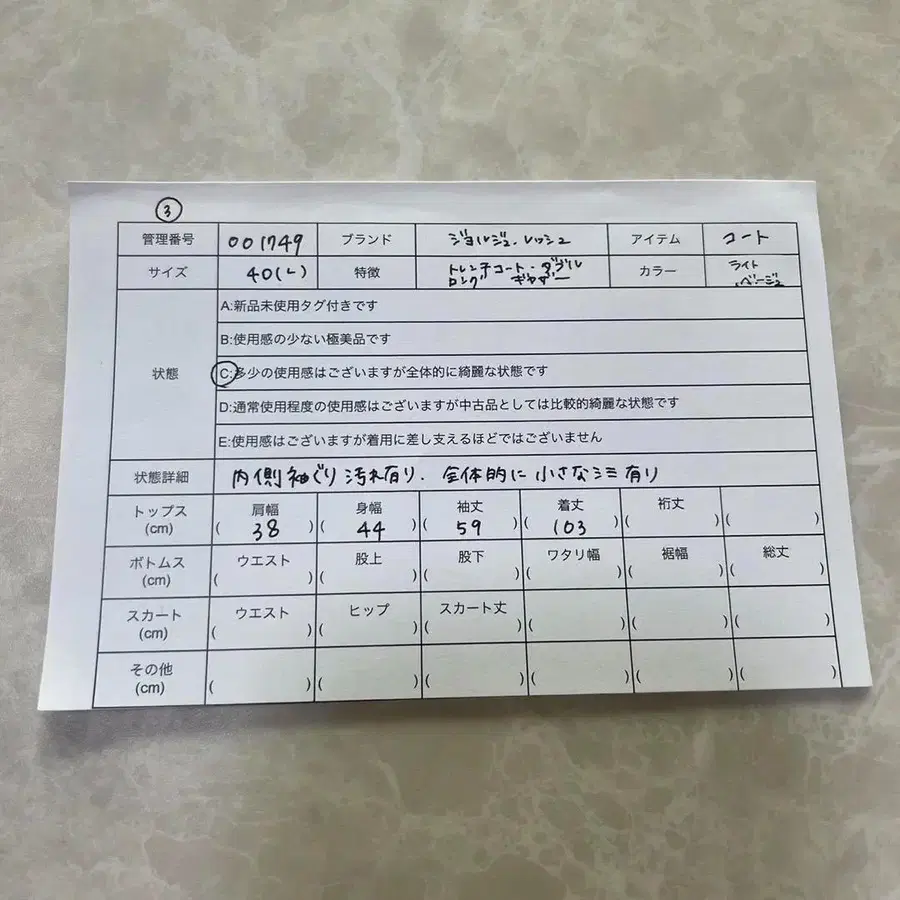 ③
管理番号 001749 ブランド ジョルジュ.レッシュ アイテム コート
サイズ 40(L) 特徴 トレンチコート・ダブル カラー ライト
ロング ギャザー ベージュ
状態
A:新品未使用タグ付きです
B:使用感の少ない極美品です
C:多少の使用感はございますが全体的に綺麗な状態です
D:通常使用程度の使用感はございますが中古品としては比較的綺麗な状態です
E:使用感はございますが着用に差し支えるほどではございません
状態詳細 内側袖ぐり汚れ有り.全体的に小さなシミ有り
トップス 肩幅 身幅 袖丈 着丈 裄丈
(cm) (38) (44) (59) (103) ( ) ( )
ボトムス ウエスト 股上 股下 ワタリ幅 裾幅 総丈
(cm) ( ) ( ) ( ) ( ) ( ) ( )
スカート ウエスト ヒップ スカート丈
(cm) ( ) ( ) ( ) ( ) ( ) ( )
その他
(cm) ( ) ( ) ( ) ( ) ( ) ( )